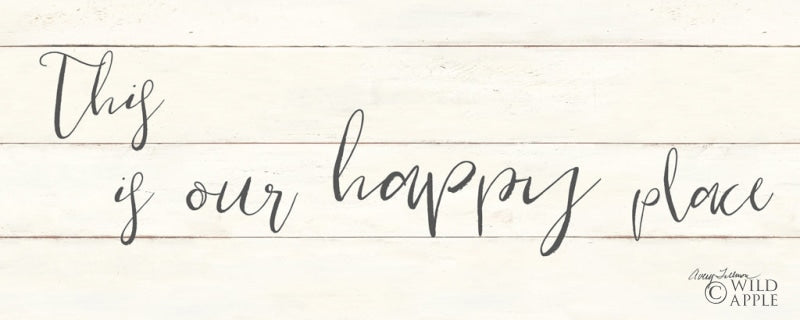 This
is our happy place
Avery Tillmon
© WILD
APPLE